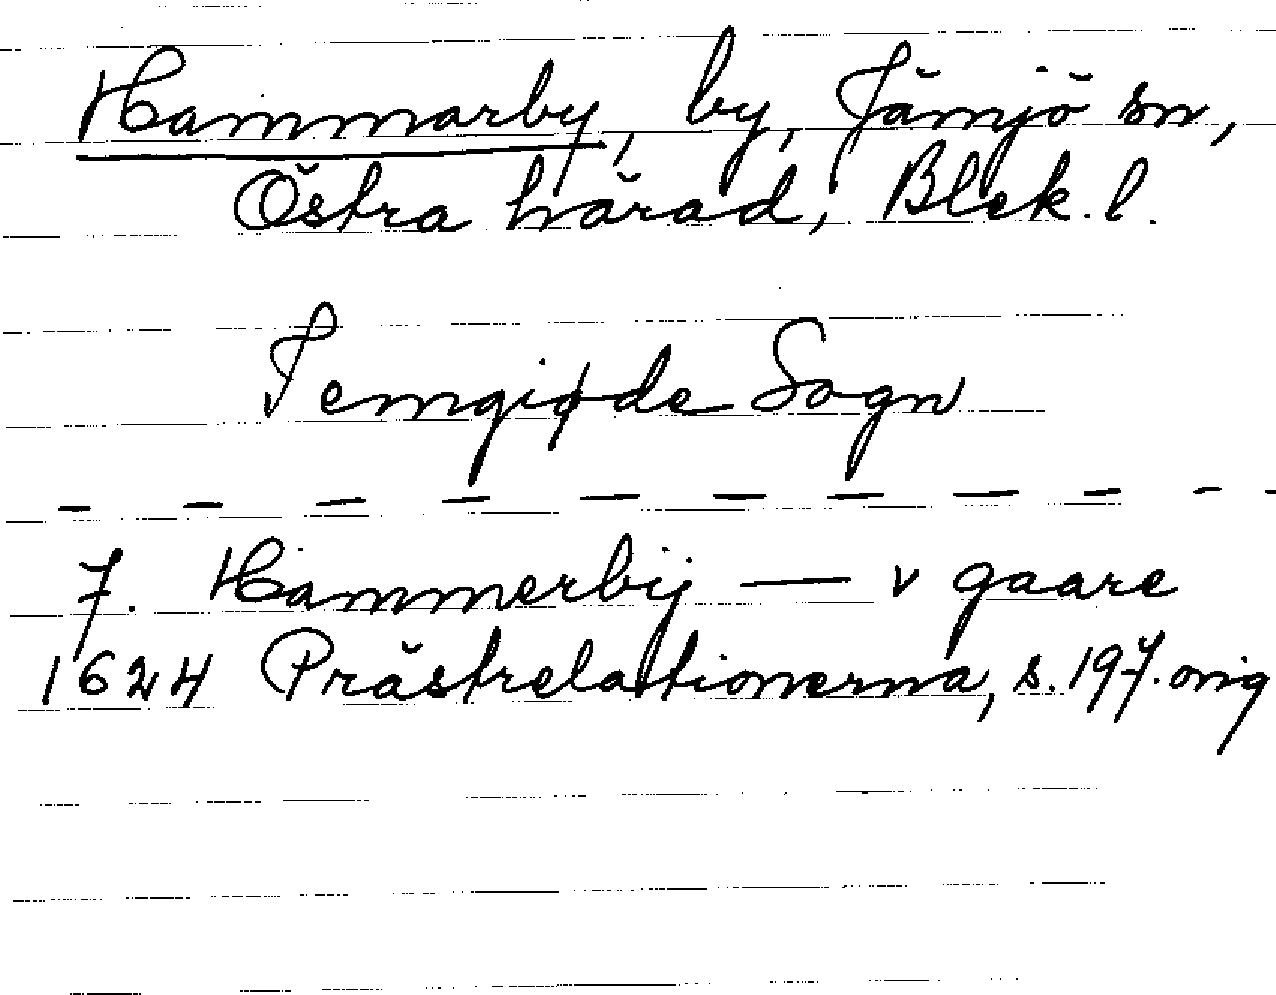 Hammarby, by, Jämjö sn,
Östra härad, Blek. l.
Jemgiøde Sogn
- - - - - - - - - -
7. Hammerbÿ — v gaare
1624 Prästrelationerna, s. 197. orig